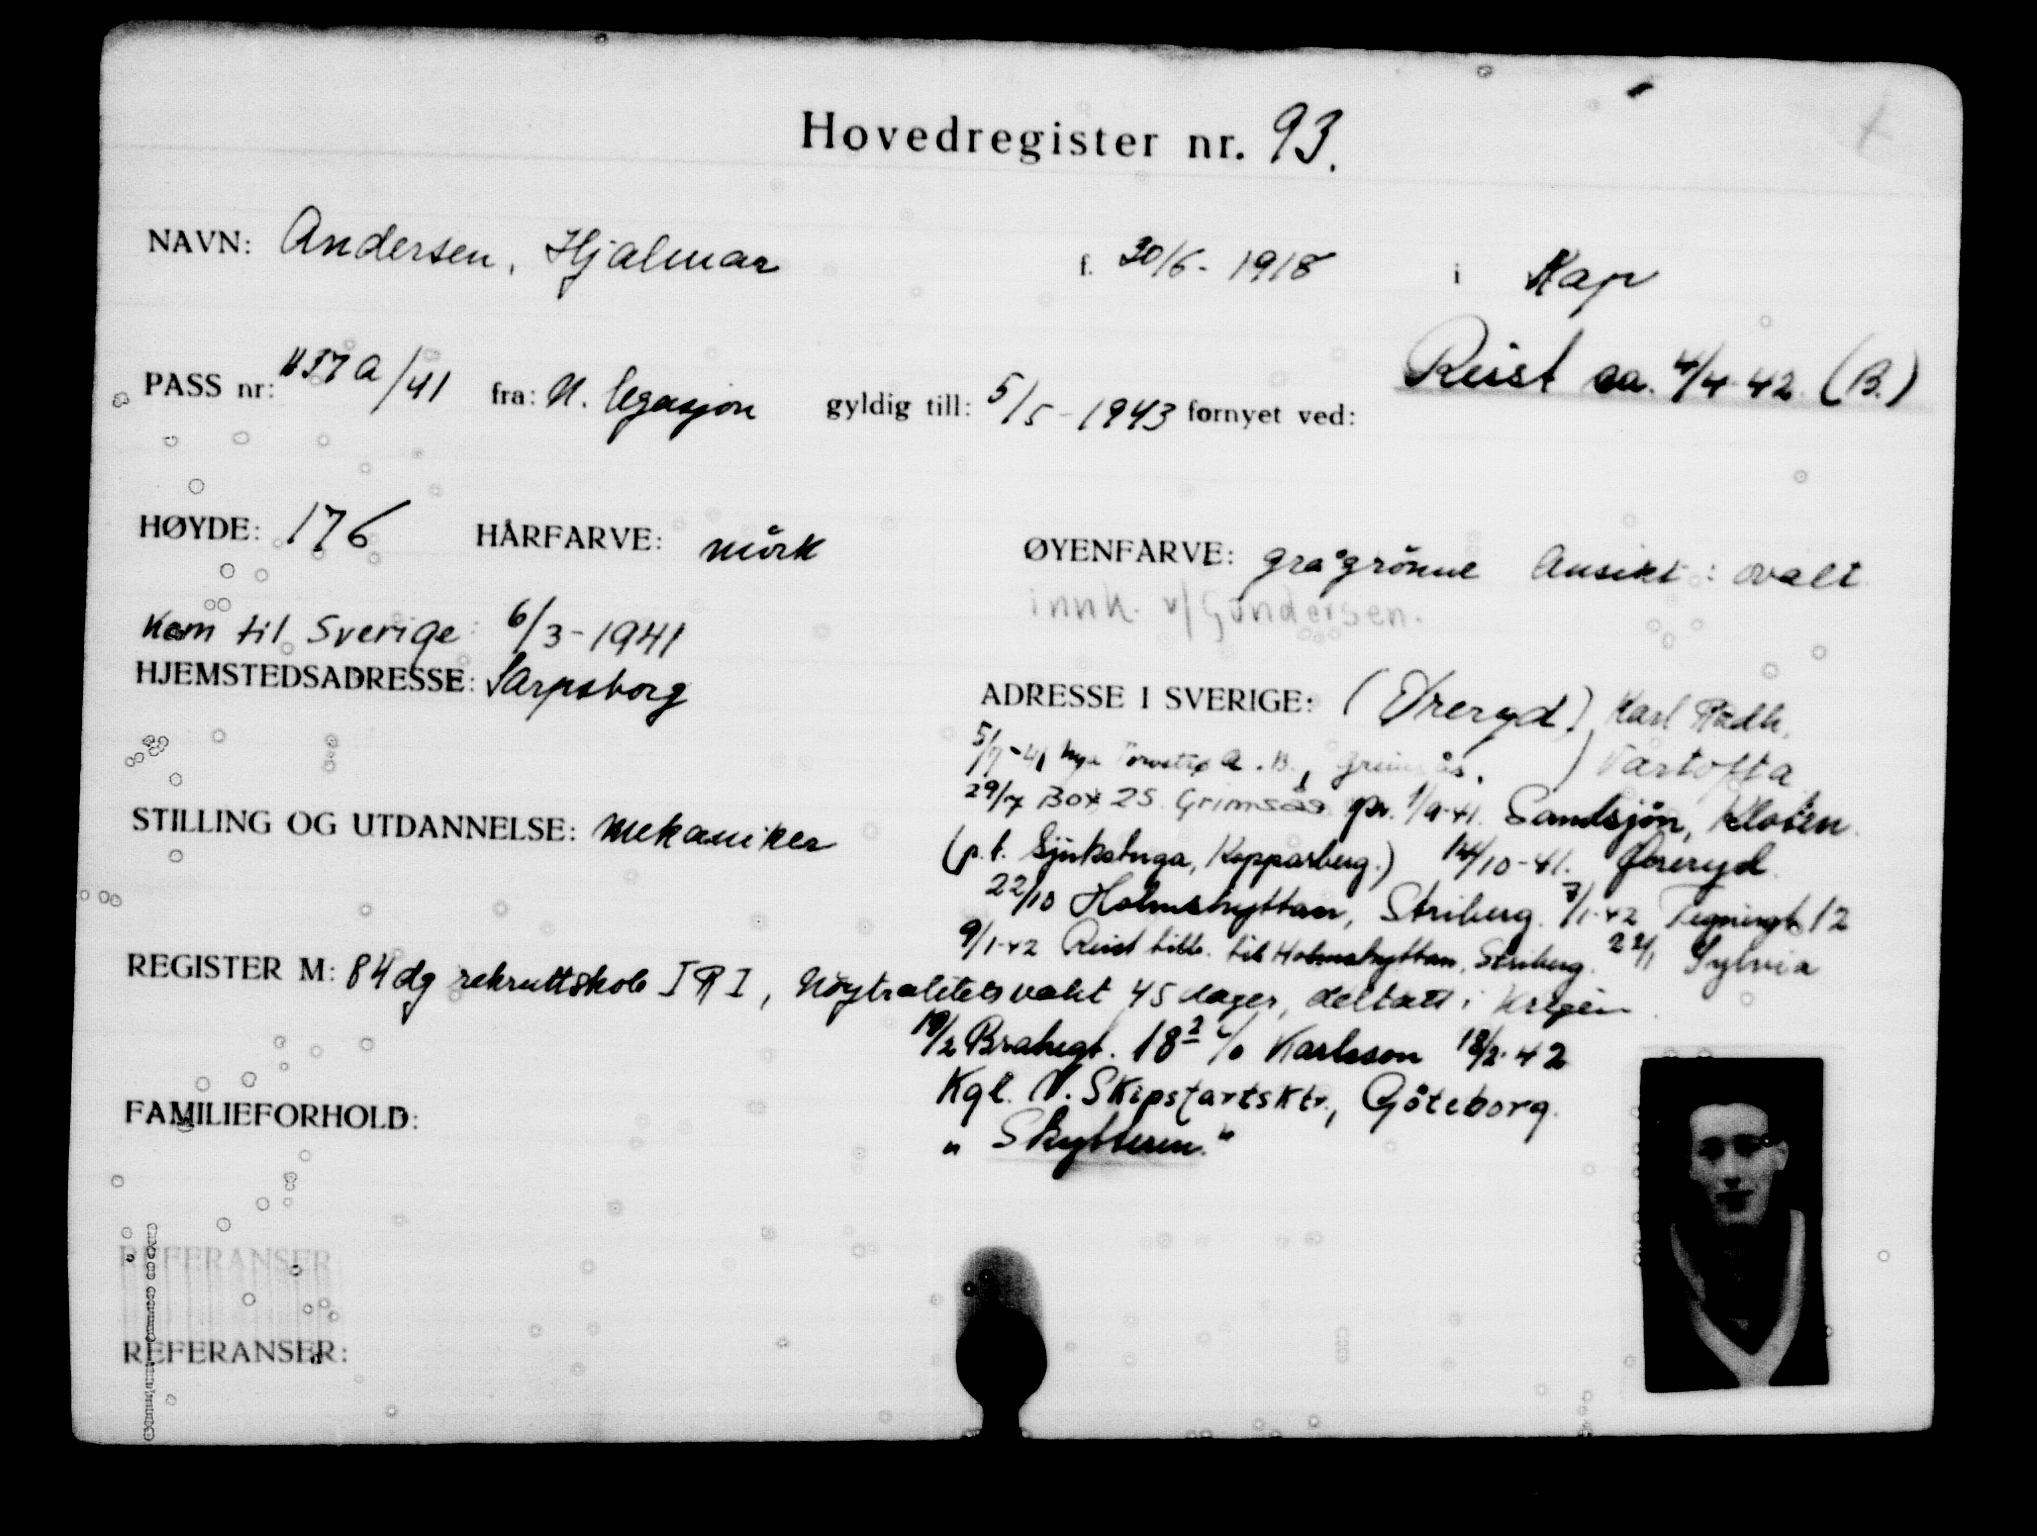 Hovedregister nr. 93.
NAVN: Andersen, Hjalmar f. 30/6 - 1918 i Kap
Reist ca. 4/4-42 (B.)
PASS nr: 1137 a/41 fra: N. legasjon gyldig till: 5/5 - 1943 fornyet ved:
HØYDE: 176 HÅRFARVE: mörk ØYENFARVE: grågrönne Ansikt: ovalt
innk. v/ Gundersen.
Kom til Sverige: 6/3 - 1941
HJEMSTEDSADRESSE: Sarpsborg
ADRESSE I SVERIGE: (Öreryd) Karl
5/7-41 Nya A.B., ) Vartofta
29/7 Box 25 Grimsås pr. 1/9-41. Sandsjön, Kloten.
STILLING OG UTDANNELSE: Mekaniker
(p.t. Sjukstuga, Kopparberg.) 14/10-41. Öreryd
22/10 Holmshyttan, Striberg. 7/1-42 12
9/1-42 Reist tilb. til Holmshyttan, Striberg. 22/1 Sylvia
REGISTER M: 84 dg rekruttskole I R I, Nøytralitetsvakt 45 dager, deltatt i krigen
19/2 Brahegt. 18² c/o Karlsson 18/2-42
Kgl. N. Skipsfartsktr., Göteborg.
FAMILIEFORHOLD:
"Skytteren."
REFERANSER
REFERANSER: